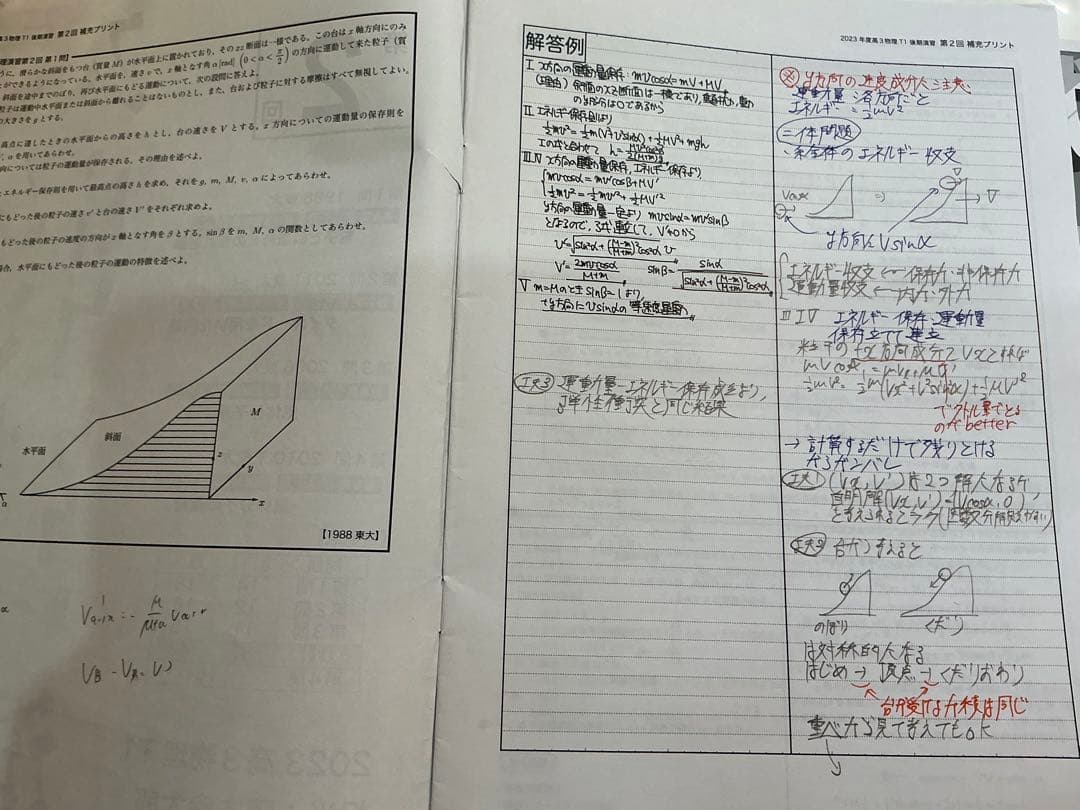 高3物理 T1 後期演習 第2回 補充プリント
理演習第2回 第1問】
うに、滑らかな斜面をもつ台(質量 M)が水平面上に置かれており、その xz 断面は一様である。この台は x 軸方向にのみ
ができるようになっている。水平面を、速さ v で、x 軸となす角 α[rad] (0<α<π/2) の方向に運動して来た粒子(質
斜面を途中までのぼり、再び水平面にもどる運動について、次の設問に答えよ。
粒子は運動中水平面または斜面から離れることはないものとし、また、台および粒子に対する摩擦はすべて無視してよい。
の大きさを g とする。
高点に達したときの水平面からの高さを h とし、台の速さを V とする。x 方向についての運動量の保存則を
V, α を用いてあらわせ。
向については粒子の運動量が保存される。その理由を述べよ。
とエネルギー保存則を用いて最高点の高さ h を求め、それを g, m, M, v, α によってあらわせ。
にもどった後の粒子の速さ v' と台の速さ V' をそれぞれ求めよ。
もどった後の粒子の速度の方向が x 軸となす角を β とする。sin β を m, M, α の関数としてあらわせ。
場合、水平面にもどった後の粒子の運動の特徴を述べよ。
水平面
斜面
M
z
y
x
α
【1988 東大】
解答例
Ⅰ x方向の運動量保存: mvcosα=mV+MV
Ⅱ エネルギー保存則より
½mv²=½m(V²+v²sin²α)+½MV²+mgh
Ⅰの式と合わせて h=Mv²cos²α/2(M+m)g
Ⅲ.Ⅳ x方向の運動量保存、エネルギー保存より
mvcosα=mv'cosβ+MV'
½mv²=½mv'²+½MV'²
y方向の運動量一定より mvsinα=mv'sinβ
となるので、3式連立して、V'≠0から
v'=√(sin²α+(M-m/M+m)²cos²α) v
V'=2mvcosα/M+m
sinβ=sinα/√(sin²α+(M-m/M+m)²cos²α)
Ⅴ m=Mのとき sinβ=1より、
+y方向にvsinαの等速度運動
工夫3 運動量-エネルギー保存成立より、
弾性衝突と同じ結果
2023 年度高3物理T1 後期演習 第2回 補充プリント
※ y方向の速度成分に注意
運動量=各方向ごと
エネルギー=½mv²
二体問題
系全体のエネルギー収支
y方向にvsinα
エネルギー収支 ← 保存力・非保存力
運動量収支 ← 内力・外力
Ⅲ Ⅳ エネルギー保存・運動量
保存立てて連立
粒子の+x方向成分でVxとすれば
½mv²=½m(Vx²+v²sin²α)+½MV'²
のがbetter
→ 計算するだけで残りとける
からガンバレ
工夫1 (Vx, V')は2つ解となるが、
自明解(Vx,V')=(vcosα,0)
工夫2 台から考えると
のぼり
くだり
は対称的となる
はじめ→頂点→くだりおわり
台が受ける力積は同じ
重心から見て考えてもok